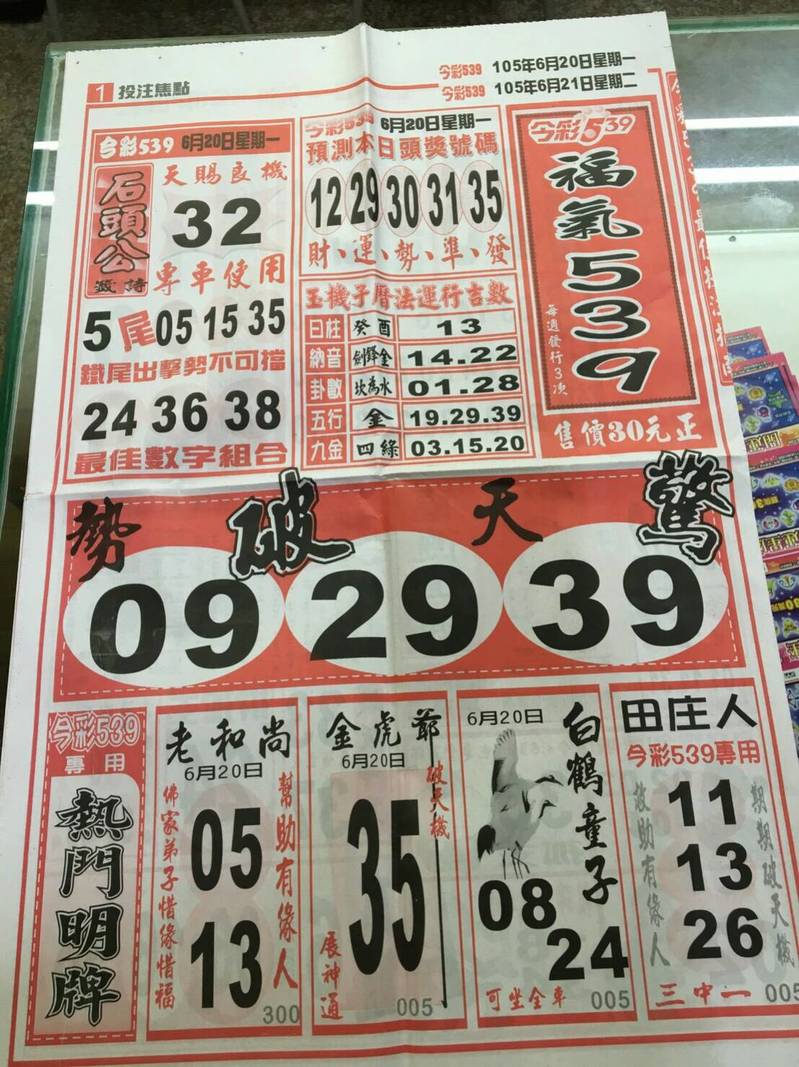 1 投注焦點
今彩539 105年6月20日星期一
今彩539 105年6月21日星期二
今彩539 6月20日星期一
石頭公
天賜良機
32
專車使用
5尾 05 15 35
鐵尾出擊勢不可擋
24 36 38
最佳數字組合
今彩539 6月20日星期一
預測本日頭獎號碼
12 29 30 31 35
財、運、勢、準、發
玉機子曆法運行吉數
日柱 癸酉 13
納音 劍鋒金 14.22
卦數 坎為水 01.28
五行 金 19.29.39
九金 四綠 03.15.20
今彩539
福氣539
每週發行3次
售價30元正
勢破天驚
09 29 39
今彩539
專用
熱門明牌
老和尚
6月20日
幫助有緣人
05
13
佛家弟子惜緣惜福
300
金虎爺
6月20日
破天機
35
展神通
005
6月20日
白鶴童子
08
24
可坐全車 005
田庄人
今彩539專用
期期破天機
11
13
26
救助有緣人
三中一 005